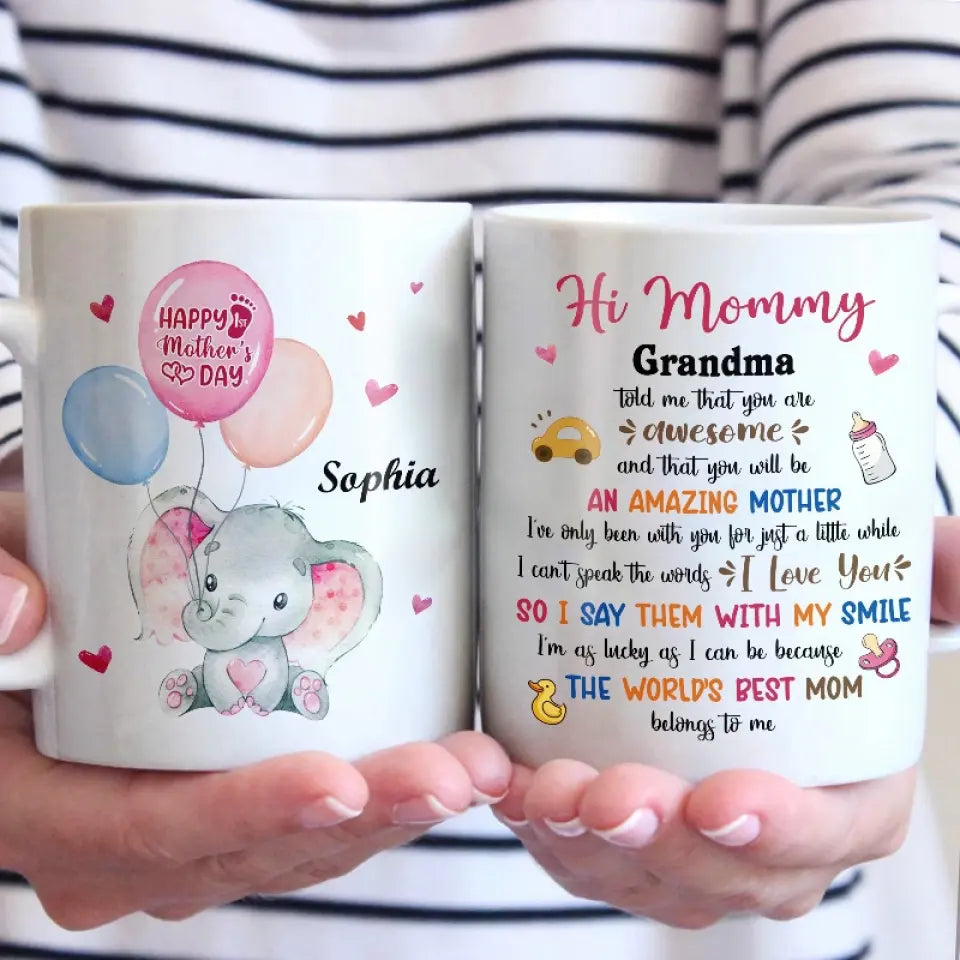 HAPPY 1ST
Mother's
DAY
Sophia
Hi Mommy
Grandma
told me that you are
awesome
and that you will be
AN AMAZING MOTHER
I've only been with you for just a little while
I can't speak the words I Love You
SO I SAY THEM WITH MY SMILE
I'm as lucky as I can be because
THE WORLD'S BEST MOM
belongs to me